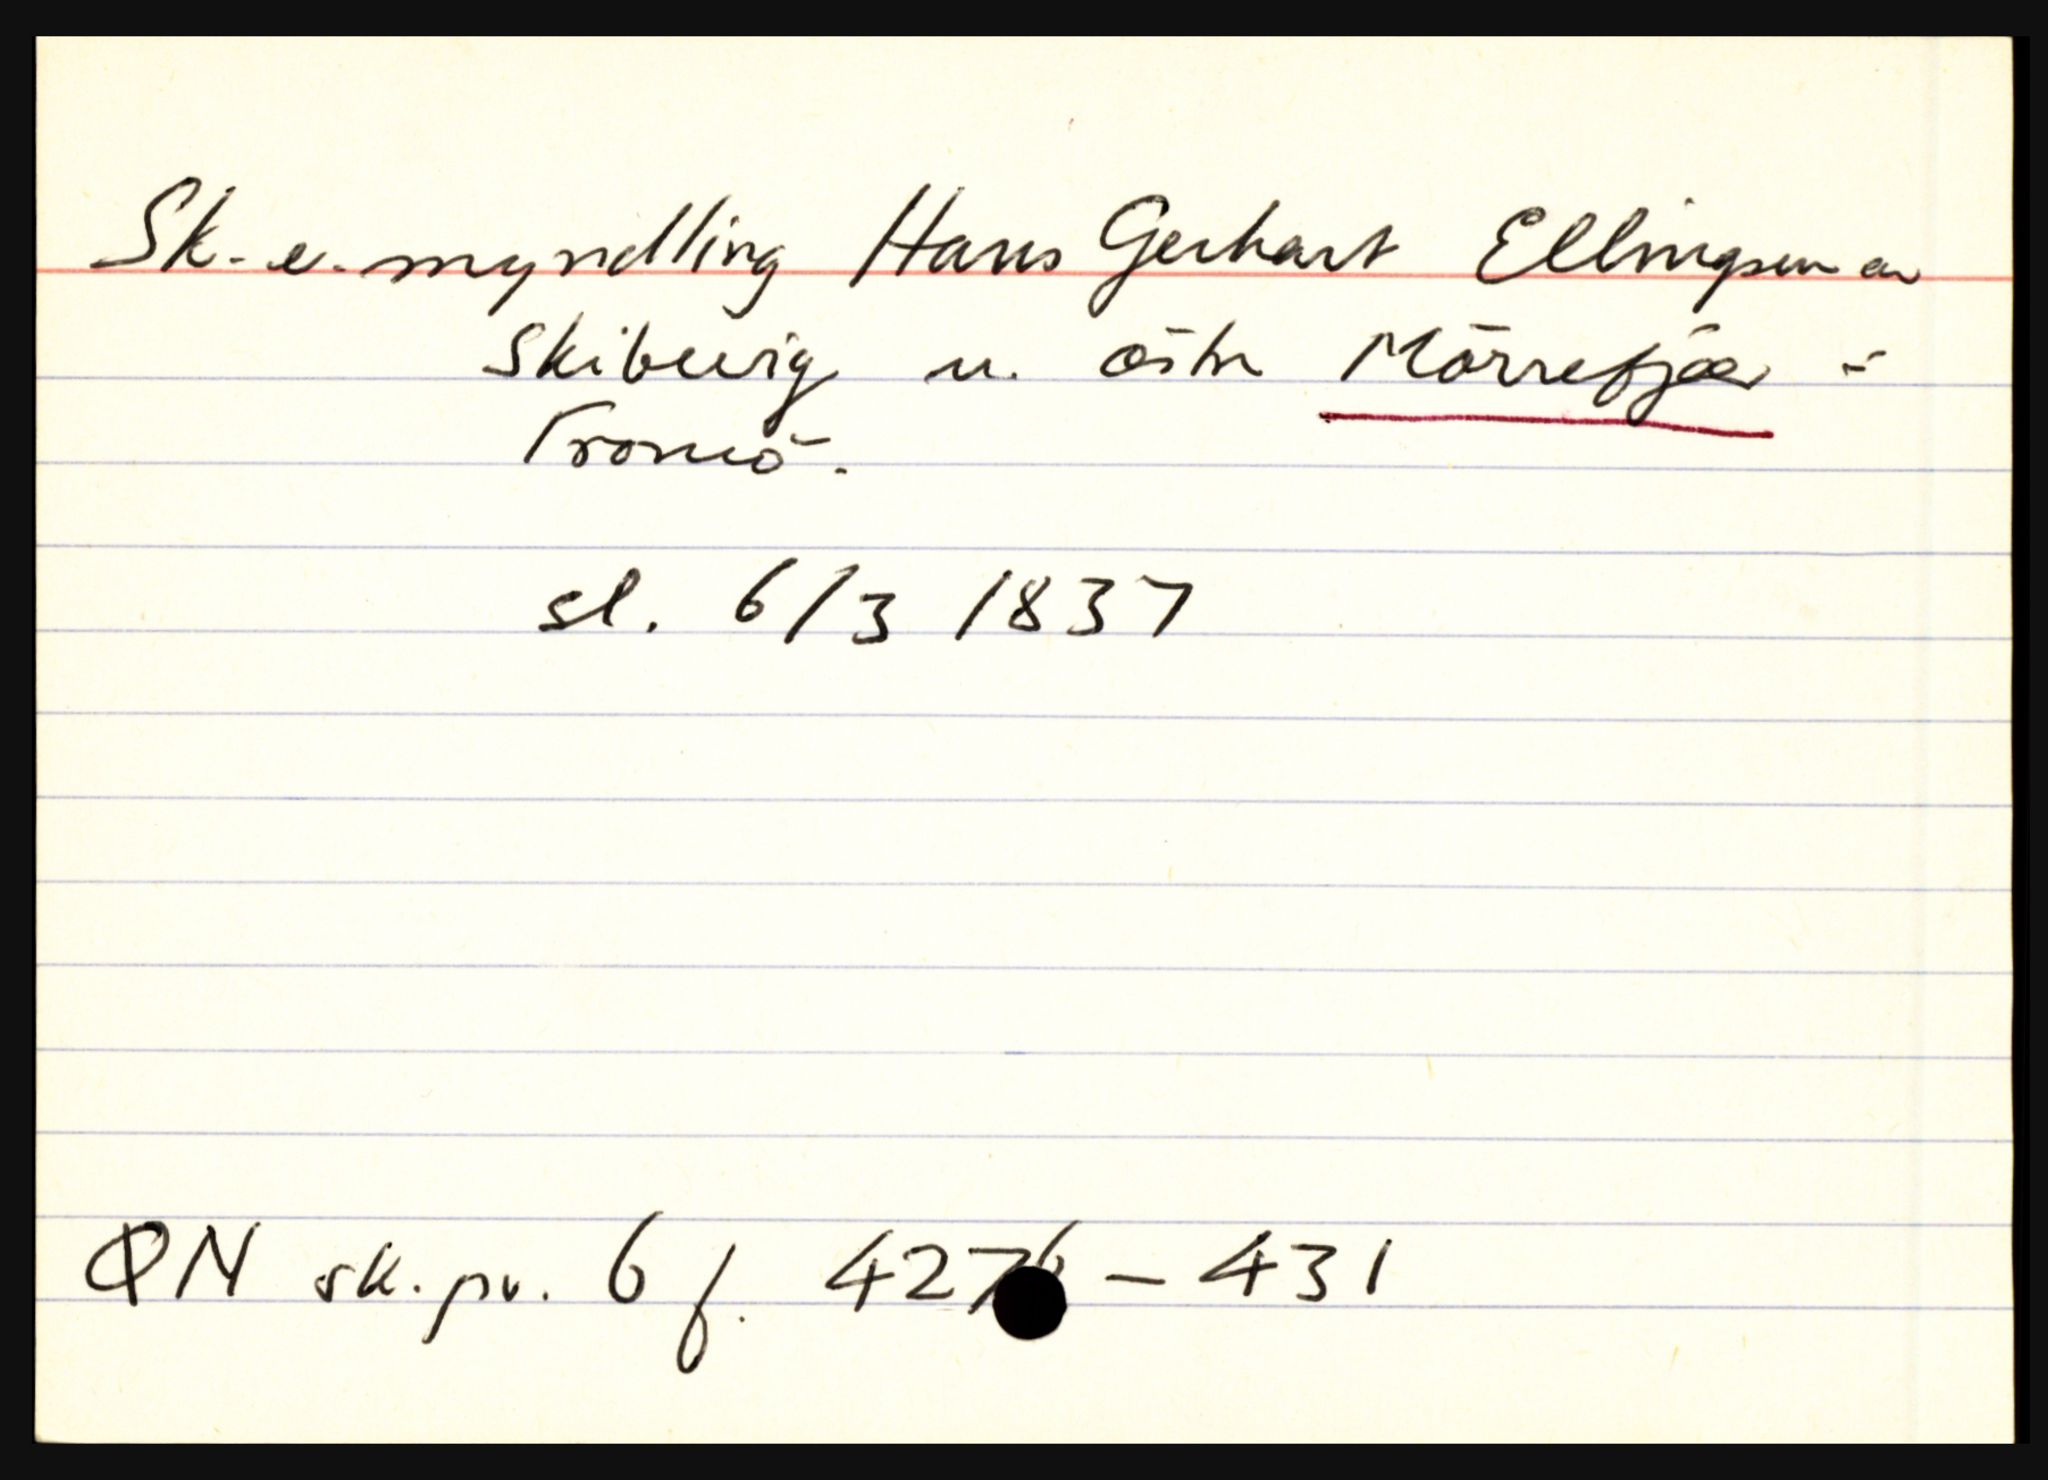 Sk. e. myndling Hans Gerhart Ellingsen av
Skibevig u. östre Mörrefjær i
Tromö.
sl. 6/3 1837
ØN sk.pr. 6 f. 427b – 431